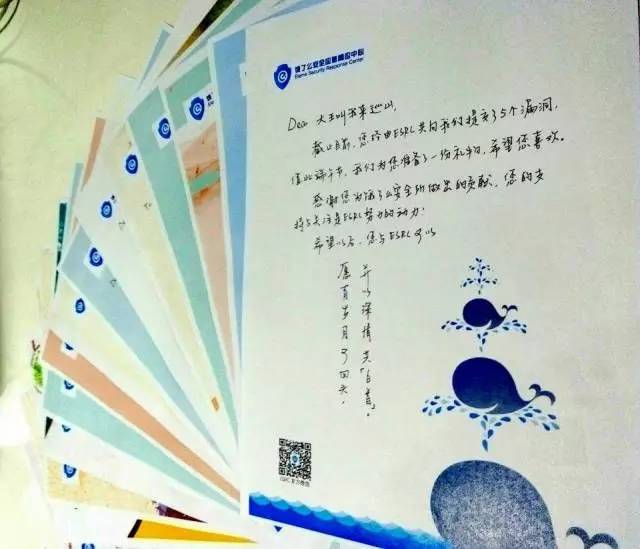 饿了么安全应急响应中心
Eleme Security Response Center
Dear 大王叫我来巡山,
截止目前, 您经由ESRC共向我们提交了5个漏洞,
值此端午节, 我们为您准备了一份礼物, 希望您喜欢。
感谢您为饿了么安全所做出的贡献, 您的支
持与关注是ESRC努力的动力!
希望以后, 您与ESRC可以
愿有岁月可回头,
并以深情共「白首」。
ESRC官方微信